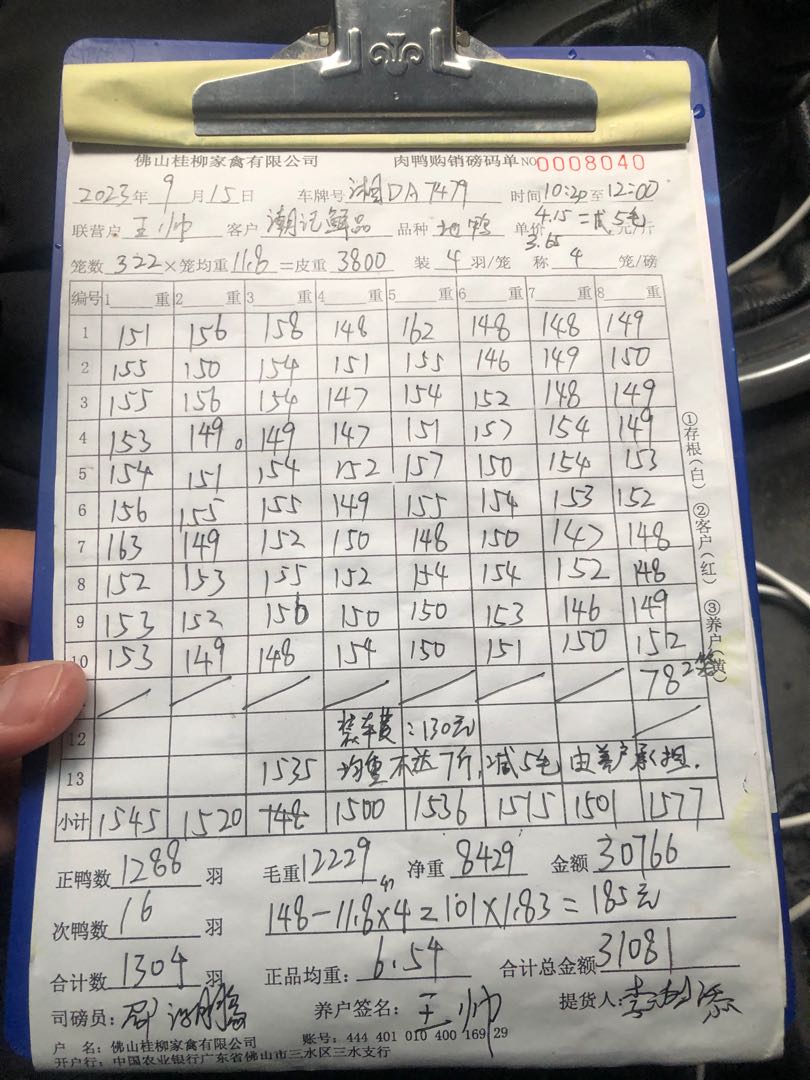 佛山桂柳家禽有限公司 肉鸭购销磅码单 NO 0008040
2023年9月15日 车牌号 DA7479 时间10:20至12:00
联营户 王帅 客户 潮记鲜品 品种 地鸭 单价 4.15=减5毛 3.65 元/斤
笼数 322×笼均重 11.8=皮重 3800 装 4 羽/笼 称 4 笼/磅
编号 1 重 2 重 3 重 4 重 5 重 6 重 7 重 8 重
1 151 156 158 148 162 148 148 149
2 155 150 154 151 155 146 149 150
3 155 156 154 147 154 152 148 149
4 153 149 149 147 151 157 154 149
5 154 151 154 152 157 150 154 153
6 156 155 155 149 155 154 153 152
7 163 149 152 150 148 150 147 148
8 152 153 155 152 154 154 152 148
9 153 152 156 150 150 153 146 149
10 153 149 148 154 150 151 150 152
78 2笼
12 装车费:130元
13 1535 均重不达7斤,减5毛 由养户承担.
小计 1545 1520 148 1500 1536 1515 1501 1577
正鸭数 1288 羽 毛重 12229 净重 8429 金额 30766
次鸭数 16 羽 148-11.8×4=101×1.83=185元
合计数 1304 羽 正品均重: 6.54 合计总金额 31081
司磅员: 养户签名: 王帅 提货人:
户 名: 佛山桂柳家禽有限公司 账号: 444 401 010 400 169 29
开户行: 中国农业银行广东省佛山市三水区三水支行
①存根(白) ②客户(红) ③养户(黄)